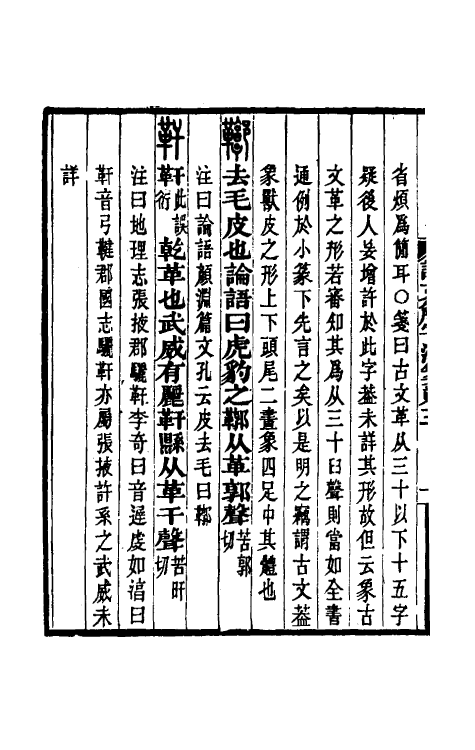 省煩爲簡耳〇箋曰古文革从三十以下十五字
疑後人妄增許於此字葢未詳其形故但云象古
文革之形若審知其爲从三十𦥑聲則當如全書
通例於小篆下先言之矣以是明之竊謂古文葢
象獸皮之形上下頭尾二畫象四足中其體也
鞹去毛皮也論語曰虎豹之鞹从革郭聲苦郭切
注曰論語顏淵篇文孔云皮去毛曰鞹
靬靬此誤革衍乾革也武威有麗靬縣从革干聲苦旰切
注曰地理志張掖郡驪靬李奇曰音遲虔如淳曰
靬音弓鞬郡國志驪靬亦屬張掖許系之武威未
詳